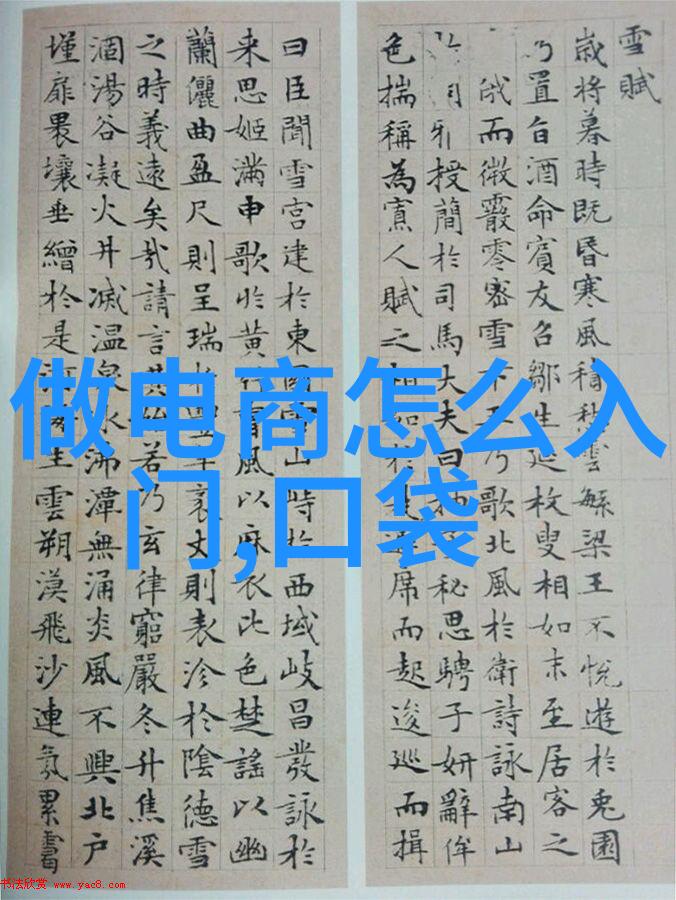 做电商怎么入
门,口袋
雪賦
歲將暮時既昏寒風積愁雲繁梁王不悅遊於兔園
乃置旨酒命賓友召鄒生延枚叟相如末至居客之
俄而微霰零密雪下王乃歌北風於衛詩詠南山
雅授簡於司馬大夫曰抽秘思騁子妍辭侔
色揣稱為寡人賦之相如於是避席而起逡巡而揖
曰臣聞雪宮建於東國雪山峙於西域岐昌發詠於
来思姬滿申歌於黃竹曹風以麻衣比色楚謠以幽
蘭儷曲盈尺則呈瑞於豐年袤丈則表沴於陰德雪
之時義遠矣哉請言其始若乃玄律窮嚴冬升焦溪
涸湯谷凝火井滅温泉冰沸潭無涌炎風不興北户
墐扉裸壤垂繒於是河海生雲朔漠飛沙連氛累靄
书法欣赏 www.yac8.com